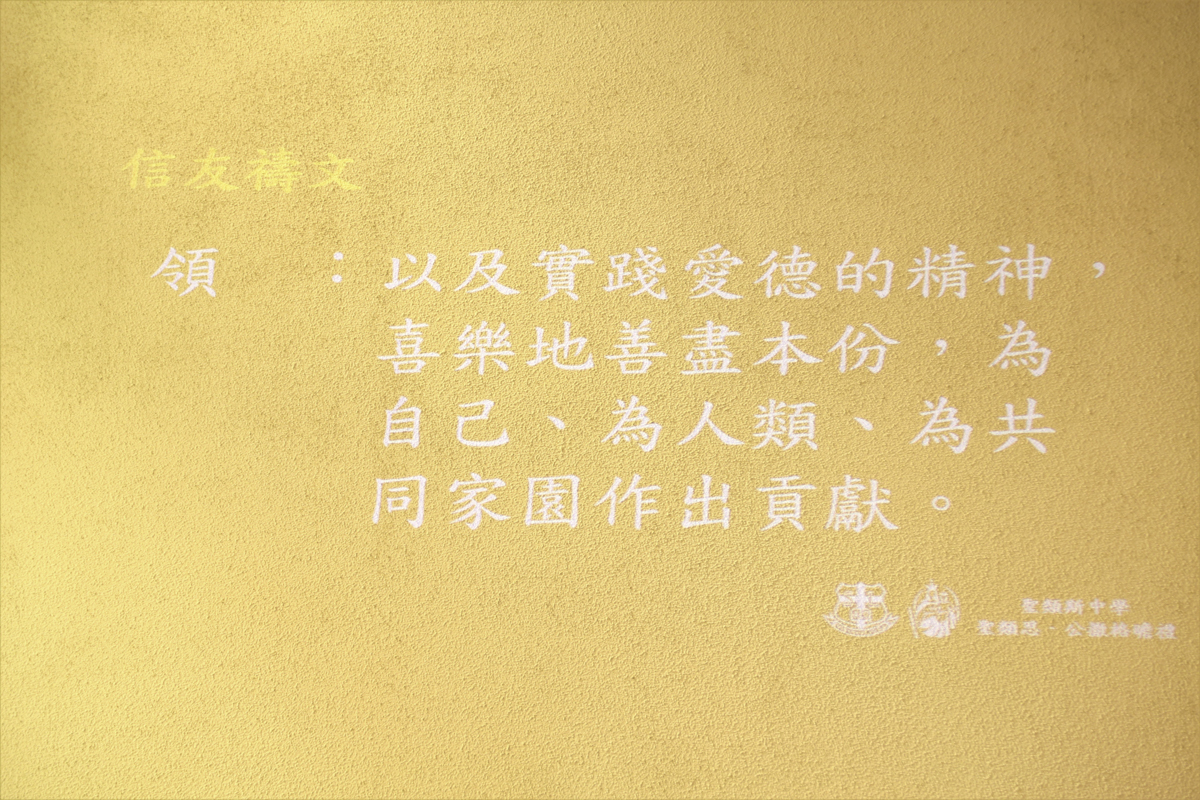 信友禱文
領　：以及實踐愛德的精神，
喜樂地善盡本份，為
自己、為人類、為共
同家園作出貢獻。
聖類斯中學
聖類思．公撒格瞻禮